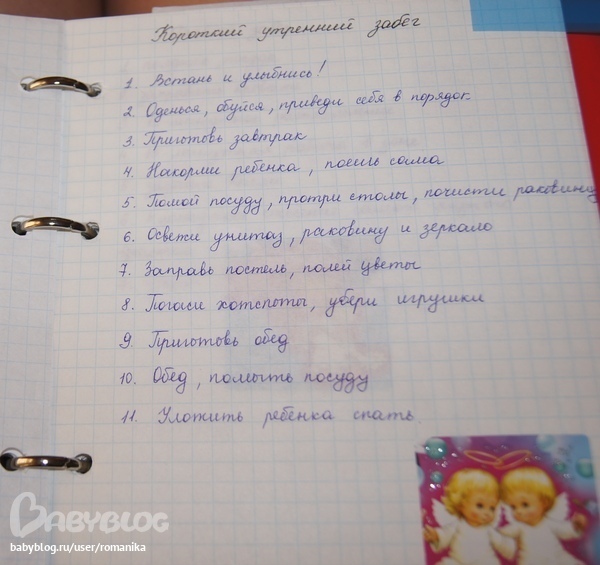 Короткий утренний забег
1. Встань и улыбнись!
2. Оденься, обуйся, приведи себя в порядок
3. Приготовь завтрак
4. Накорми ребенка, поешь сама
5. Помой посуду, протри столы, почисти раковину
6. Освежи унитаз, раковину и зеркало
7. Заправь постель, полей цветы
8. Погаси хотспоты, убери игрушки
9. Приготовь обед
10. Обед, помыть посуду
11. Уложить ребенка спать.
BABYBLOG
babyblog.ru/user/romanika